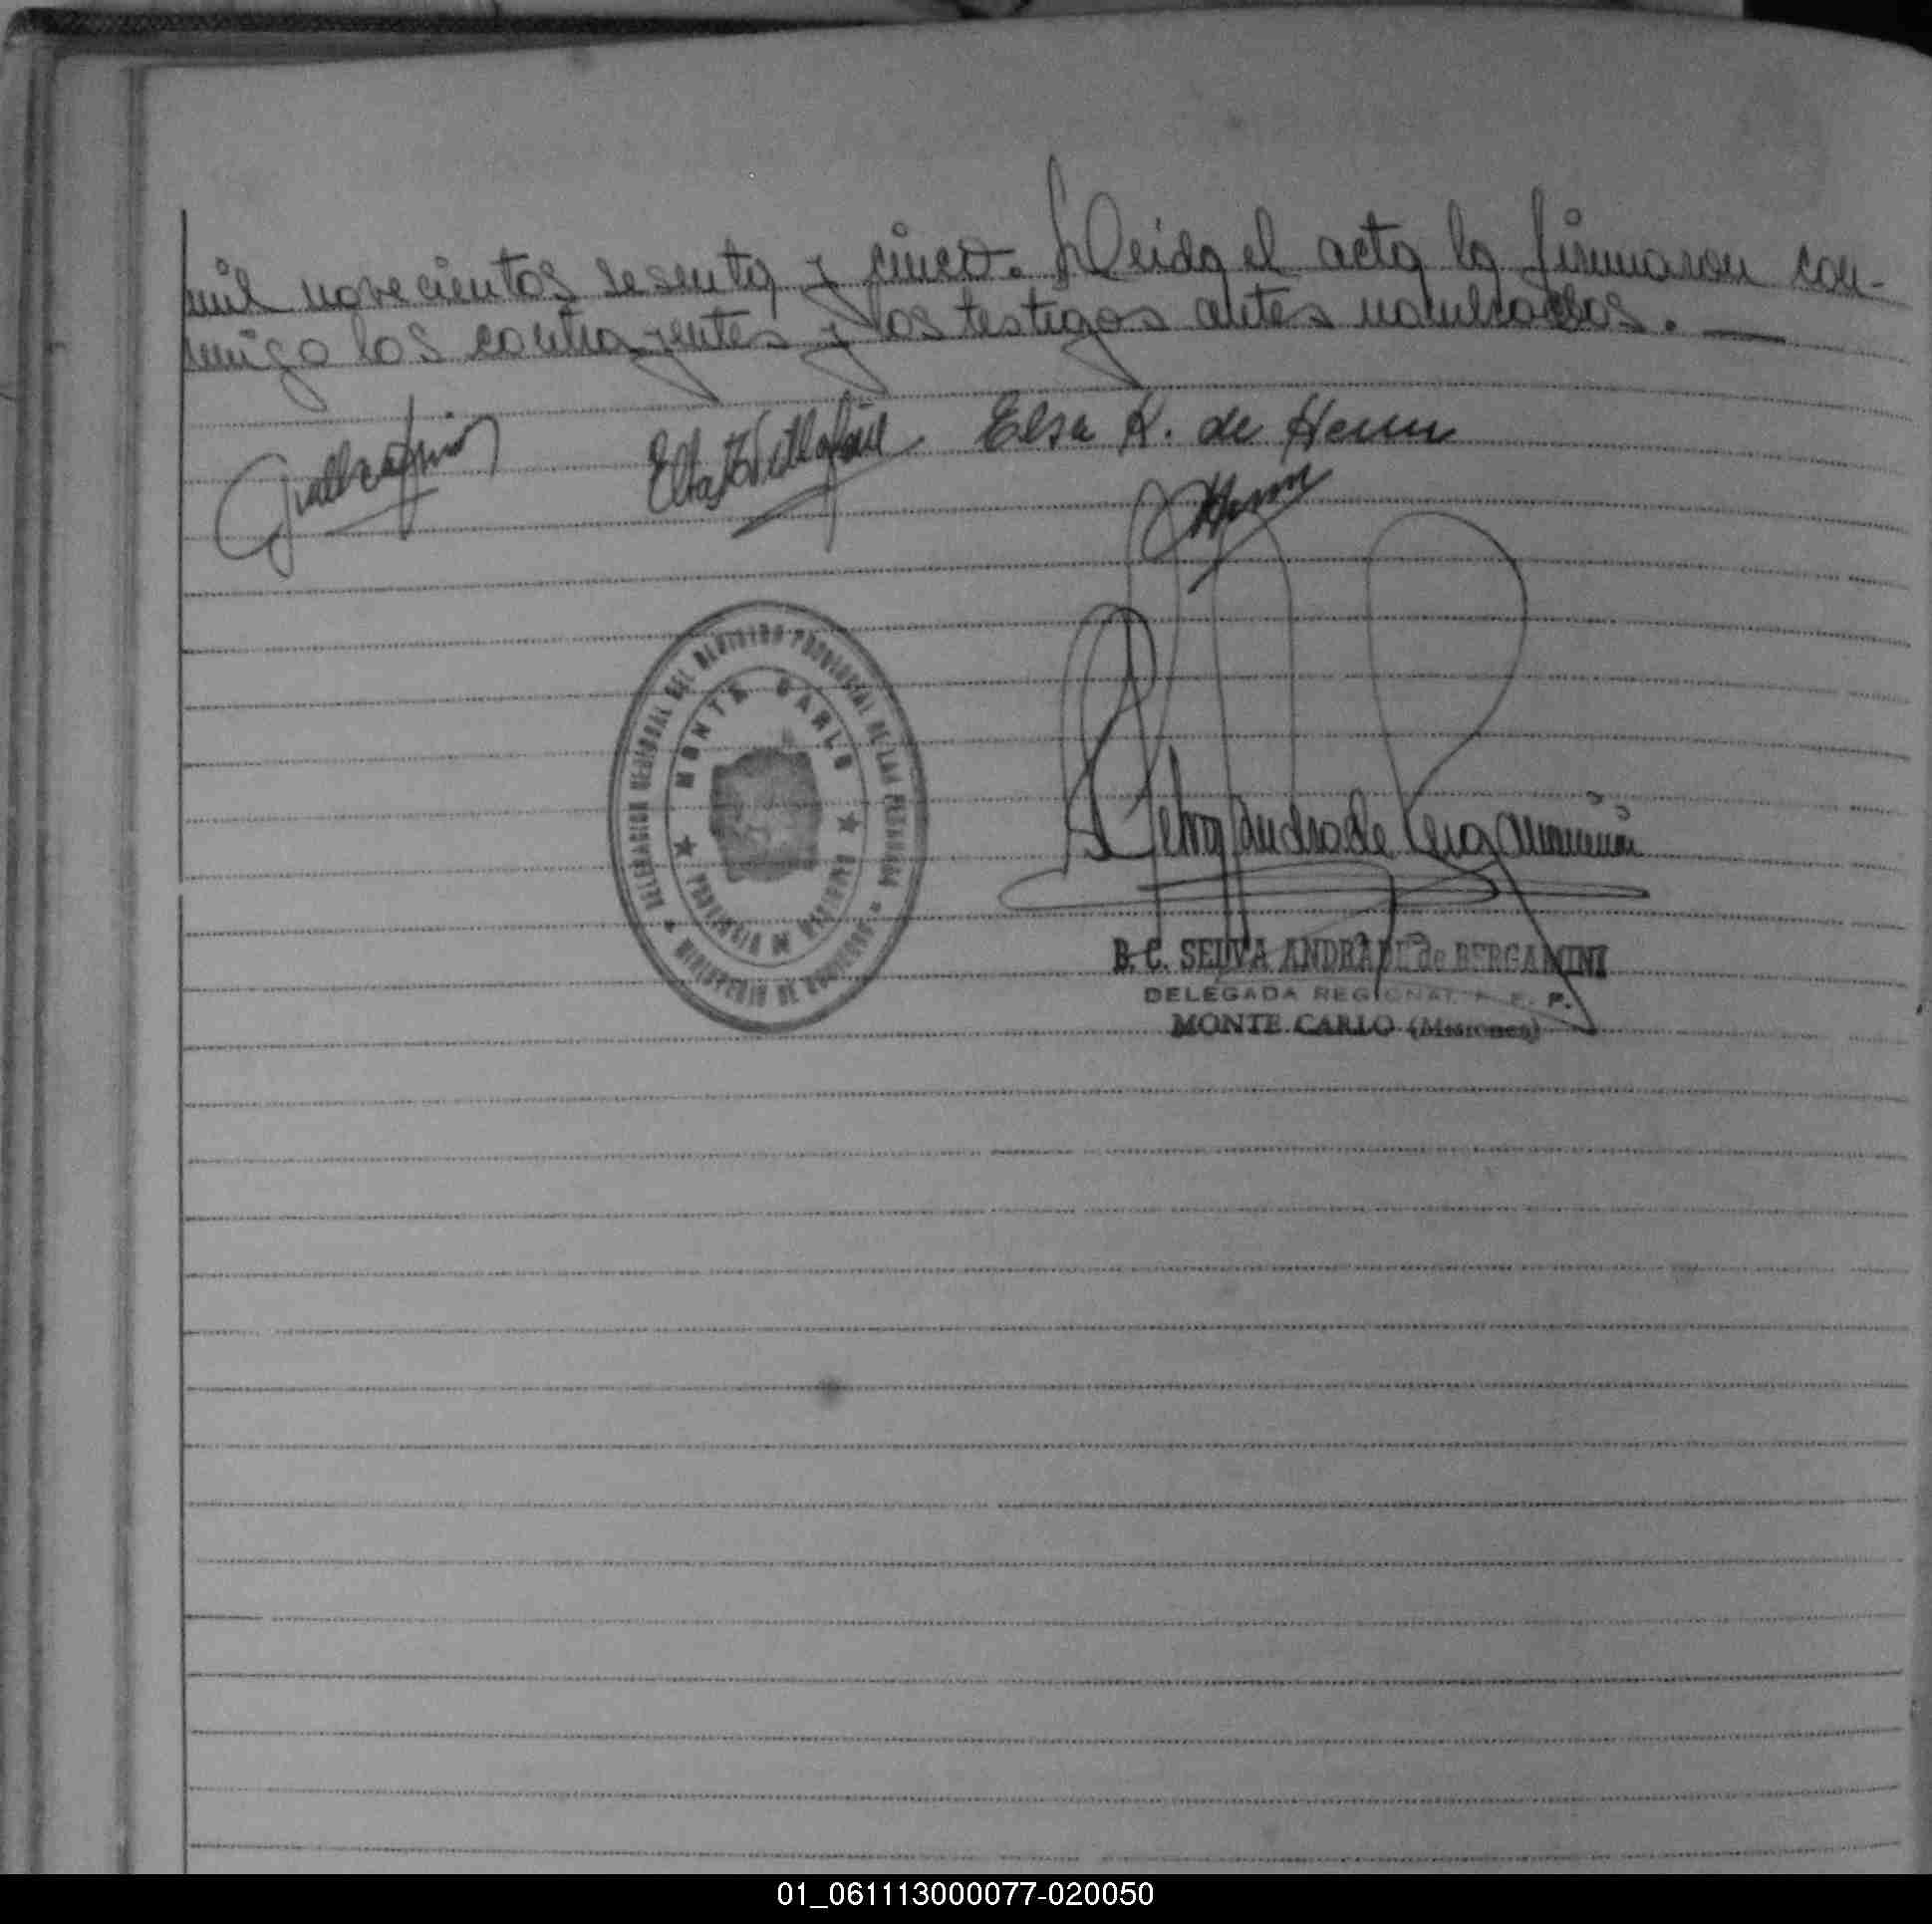 mil novecientos sesenta y cinco. Leida el acta la firmaron con-
migo los contrayentes y los testigos antes nombrados.
Elsa K. de Henn
Henn
DELEGACION REGIONAL DEL REGISTRO PROVINCIAL DE LAS PERSONAS
MONTE CARLO
PROVINCIA DE MISIONES
MINISTERIO DE GOBIERNO
Selva Andrade Bergamini
B. C. SELVA ANDRADE de BERGAMINI
DELEGADA REGIONAL R. P. P.
MONTE CARLO (Misiones)
01_061113000077-020050